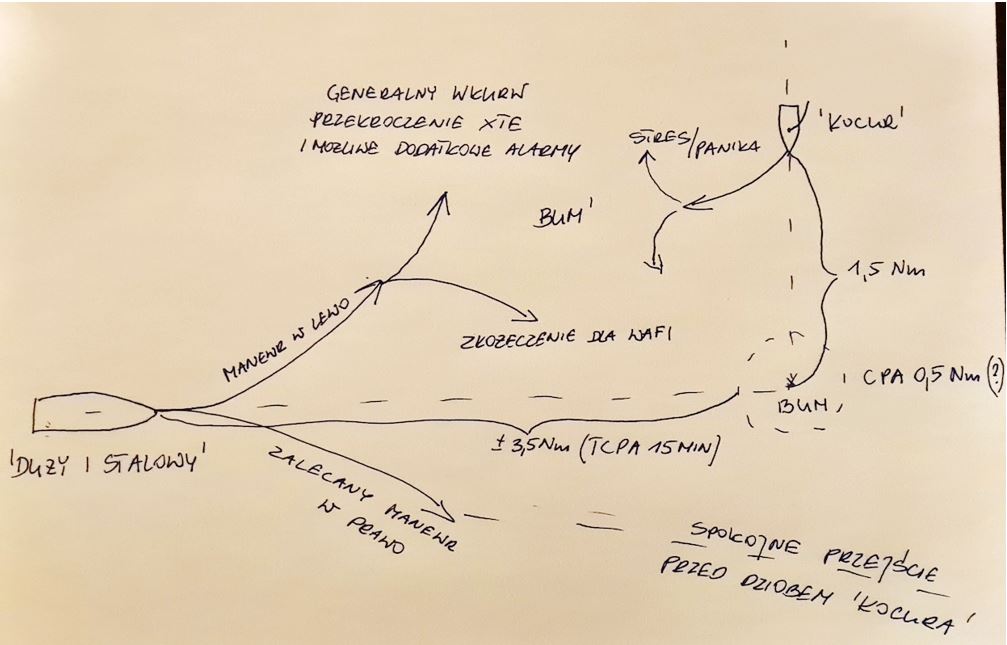 GENERALNY WKURW
PRZEKROCZENIE XTE
I MOŻLIWE DODATKOWE ALARMY
'KOCUR'
STRES/PANIKA
BUM'
1,5 Nm
MANEWR W LEWO
ZKOZECZENIE DLA WAFI
CPA 0,5 Nm (?)
BUM,
± 3,5 Nm (TCPA 15MIN)
'DUŻY I STALOWY'
ZALECANY MANEWR
W PRAWO
SPOKOJNE PRZEJŚCIE
PRZED DZIOBEM 'KOCURA'